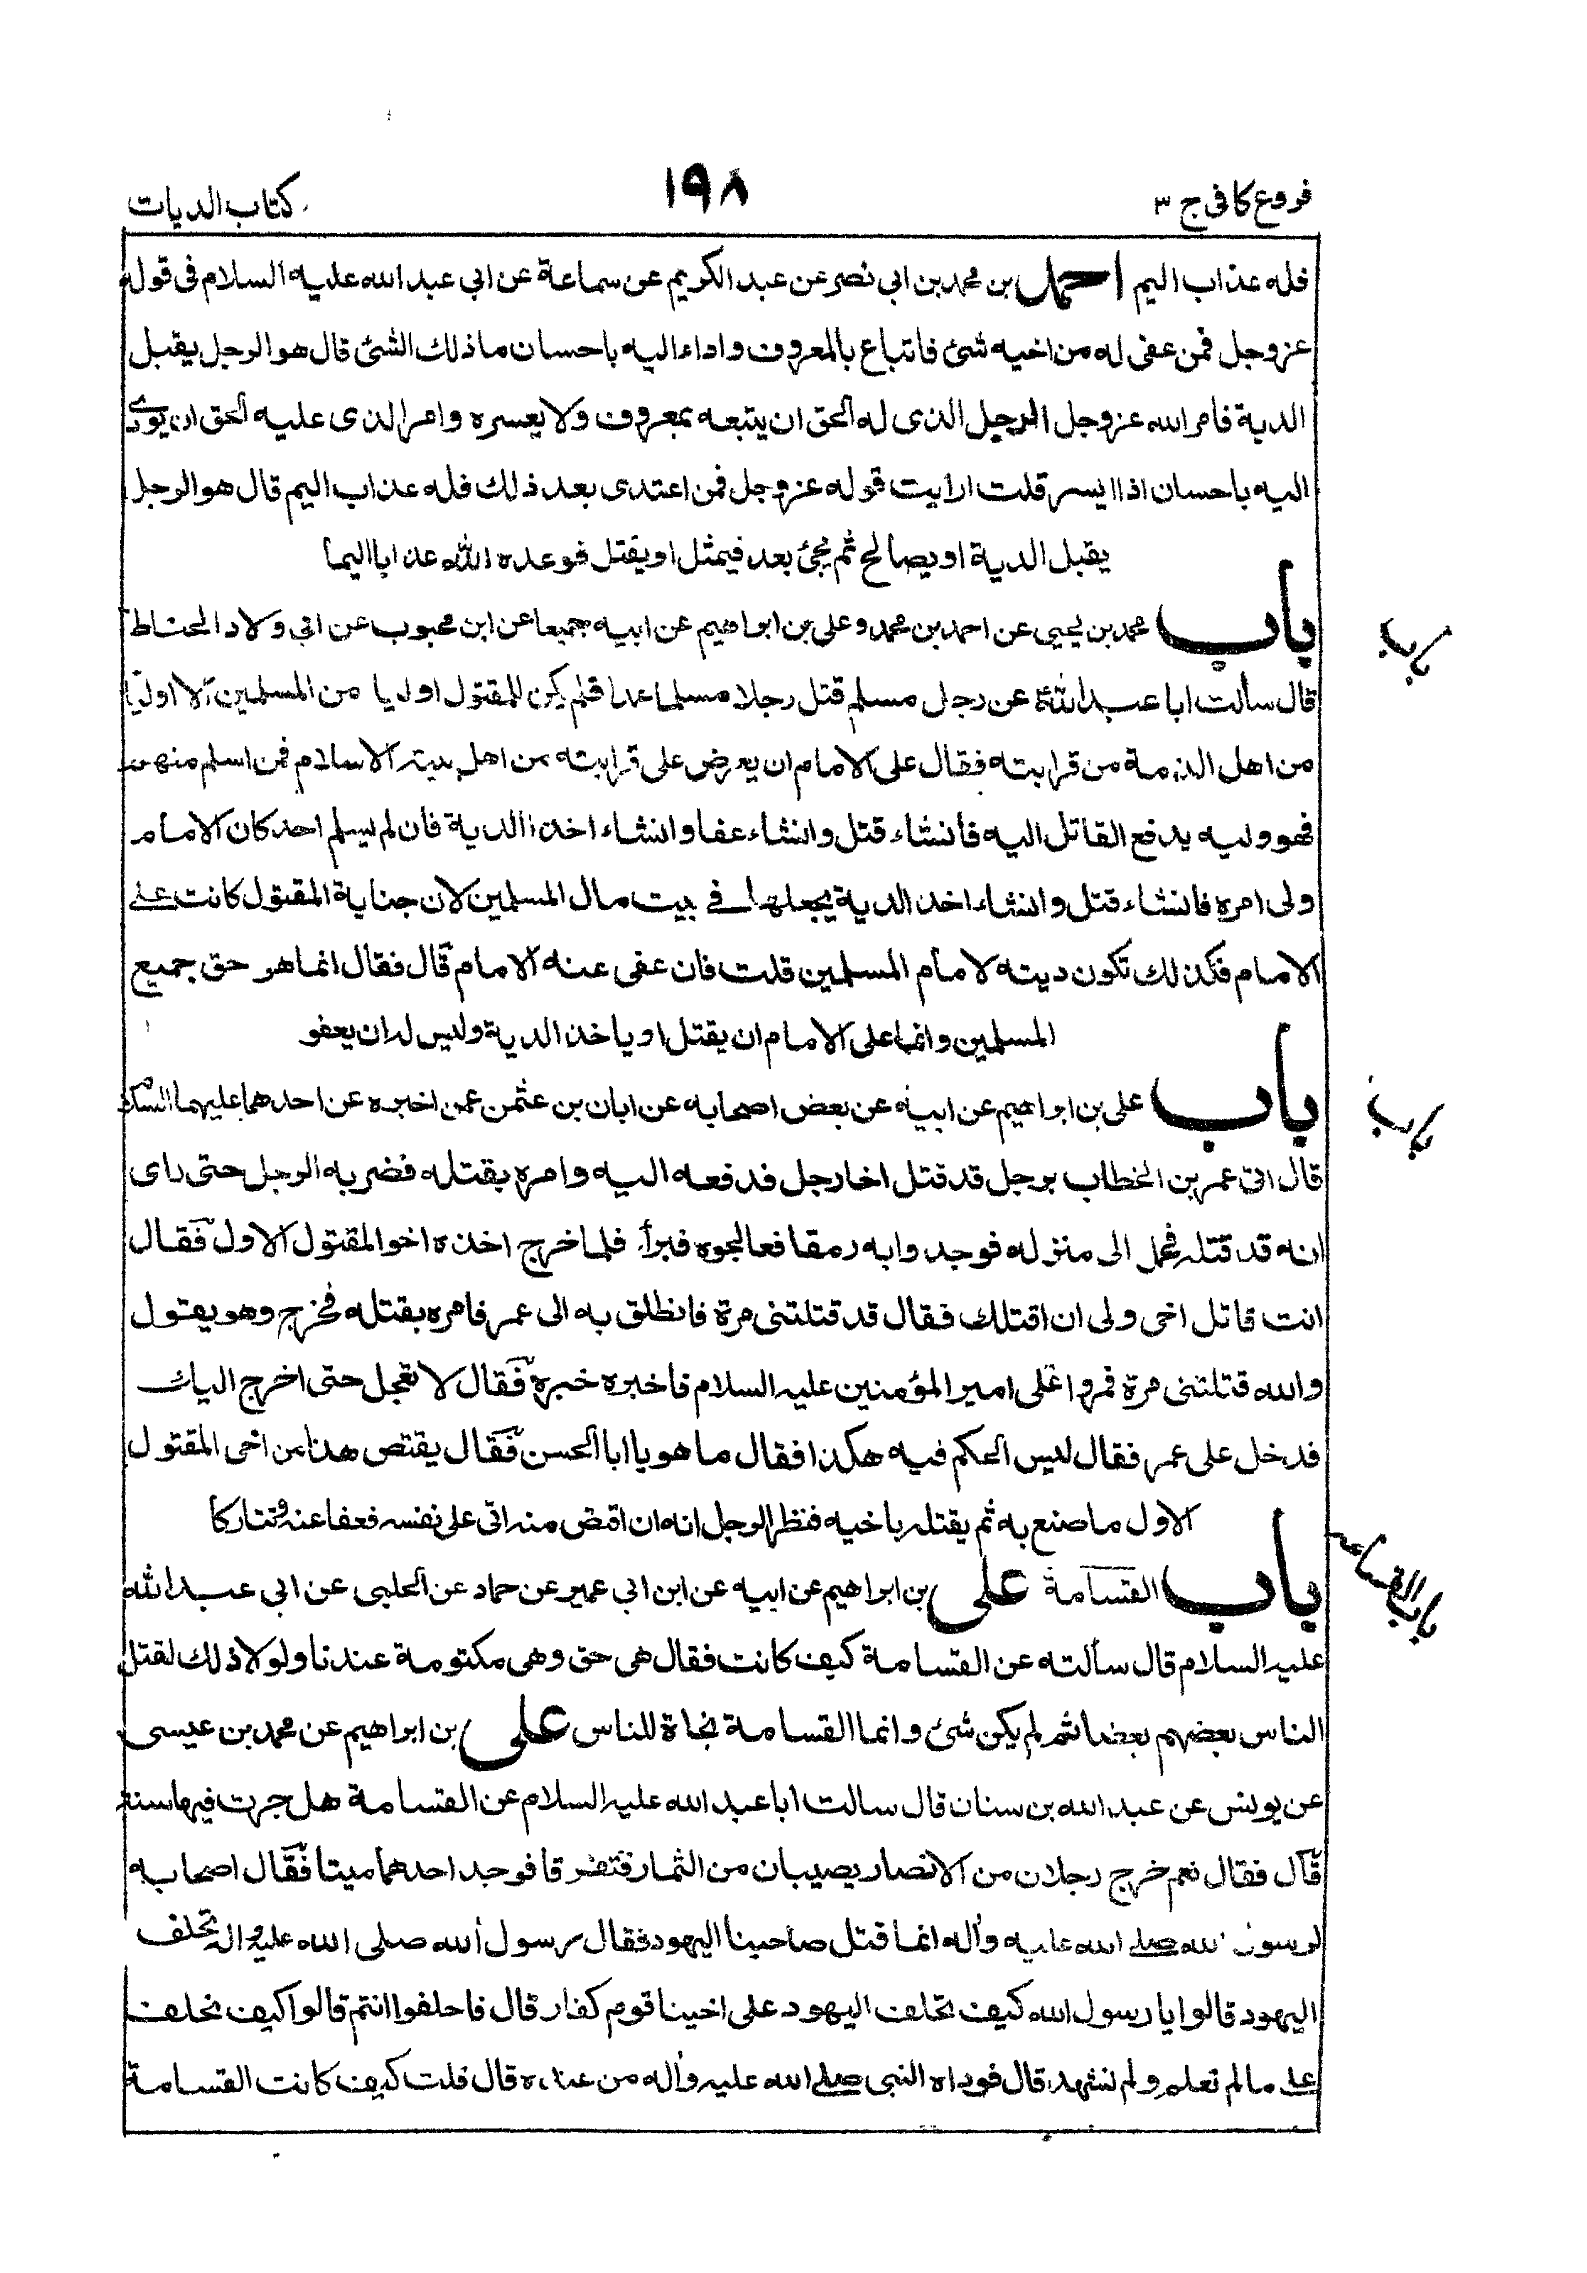 فروع كافى ج ٣
١٩٨
كتاب الديات
فله عذاب اليم احمد بن محمد بن ابى نصر عن عبد الكريم عن سماعة عن ابي عبد الله عليه السلام فى قوله
عزوجل فمن عفى له من اخيه شئ فاتباع بالمعروف واداء اليه باحسان ماذلك الشئ قال هو الرجل يقبل
الدية فامر الله عزوجل الرجل الذى له الحق ان يتبعه بمعروف ولا يعسره وامر الذى عليه الحق ان يودى
اليه باحسان اذا ايسر قلت ارايت قوله عزوجل فمن اعتدى بعد ذلك فله عذاب اليم قال هو الرجل
يقبل الدية او يصالح ثم يجئ بعد فيمثل او يقتل فوعده الله عذابا اليما
باب محمد بن يحيى عن احمد بن محمد وعلى بن ابراهيم عن ابيه جميعا عن ابن محبوب عن ابى ولاد الحناط
باب
قال سألت ابا عبد الله عن رجل مسلم قتل رجلا مسلما عمدا فلم يكن للمقتول اوليا من المسلمين الا اوليا
من اهل الذمة من قرابته فقال على الامام ان يعرض على قرابته من اهل بيته الاسلام فمن اسلم منهم
فهو وليه يدفع القاتل اليه فانشاء قتل وانشاء عفا وانشاء اخذ الدية فان لم يسلم احد كان الامام
ولى امره فانشاء قتل وانشاء اخذ الدية يجعلها في بيت مال المسلمين لان جناية المقتول كانت على
الامام فكذلك تكون ديته لامام المسلمين قلت فان عفى عنه الامام قال فقال انما هو حق جميع
المسلمين وانما على الامام ان يقتل او ياخذ الدية وليس له ان يعفو
باب على بن ابراهيم عن ابيه عن بعض اصحابه عن ابان بن عثمن عمن اخبره عن احدهما عليهما السلام
باب
قال اتى عمر بن الخطاب برجل قد قتل اخا رجل فدفعه اليه وامره بقتله فضربه الرجل حتى راى
انه قد قتله فحمل الى منزله فوجدوا به رمقا فعالجوه فبرأ فلما خرج اخذه اخو المقتول الاول فقال
انت قاتل اخى ولى ان اقتلك فقال قد قتلتنى مرة فانطلق به الى عمر فامره بقتله فخرج وهو يقول
والله قتلتنى مرة فمروا على امير المؤمنين عليه السلام فاخبره خبره فقال لا تعجل حتى اخرج اليك
فدخل على عمر فقال ليس الحكم فيه هكذا فقال ما هو يا ابا الحسن فقال يقتص هذا من اخى المقتول
الاول ما صنع به ثم يقتله باخيه فنظر الرجل انه ان اقتص منه اتى على نفسه فعفا عنه وتتاركا
باب القسامة على بن ابراهيم عن ابيه عن ابن ابى عمير عن حماد عن الحلبى عن ابى عبد الله
باب القسامة
عليه السلام قال سألته عن القسامة كيف كانت فقال هى حق وهى مكتومة عندنا ولولا ذلك لقتل
الناس بعضهم بعضا ثم لم يكن شئ وانما القسامة نجاة للناس على بن ابراهيم عن محمد بن عيسى
عن يونس عن عبد الله بن سنان قال سالت ابا عبد الله عليه السلام عن القسامة هل جرت فيها سنة
قال فقال نعم خرج رجلان من الانصار يصيبان من الثمار فتفرقا فوجد احدهما ميتا فقال اصحابه
لرسول الله صلى الله عليه وآله انما قتل صاحبنا اليهود فقال رسول الله صلى الله عليه واله تحلف
اليهود قالوا يا رسول الله كيف تحلف اليهود على اخينا قوم كفار قال فاحلفوا انتم قالوا كيف نحلف
على ما لم نعلم ولم نشهد قال فوداه النبى صلى الله عليه وآله من عنده قال قلت كيف كانت القسامة